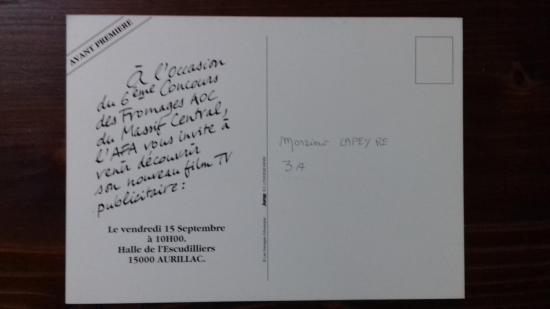 AVANT PREMIÈRE
À l'occasion
du 6ème Concours
des Fromages AOC
du Massif Central,
l'AFA vous invite à
venir découvrir
son nouveau film TV
publicitaire :
Le vendredi 15 Septembre
à 10H00.
Halle de l'Escudilliers
15000 AURILLAC.
Monsieur LAPEYRE
3A